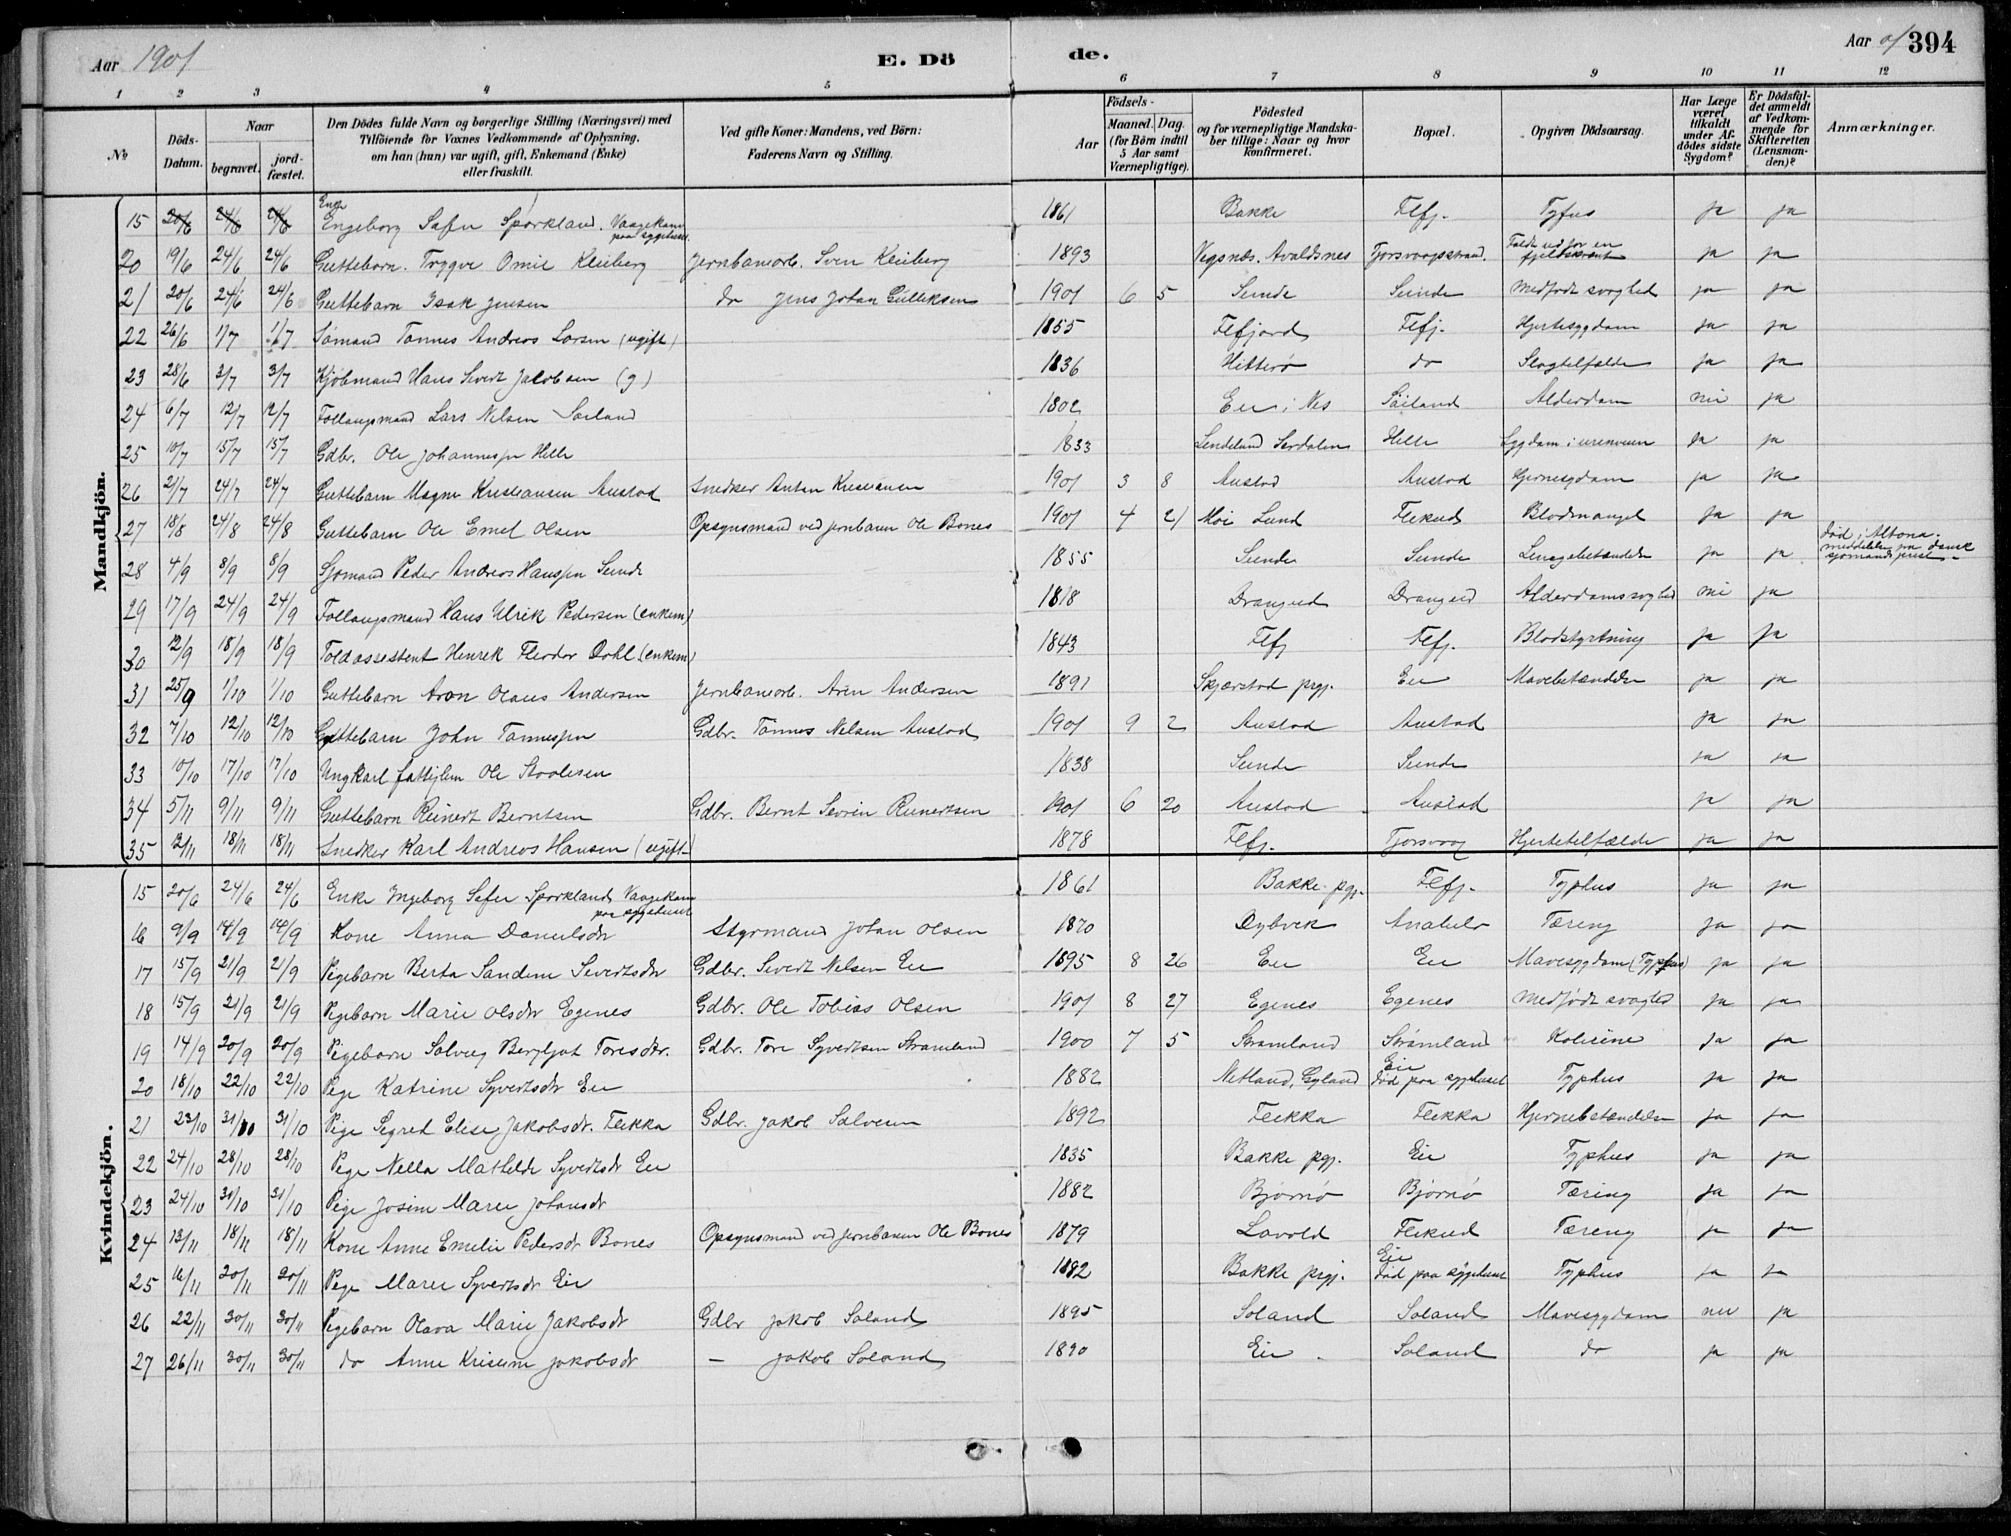 Aar 1901 E. Dö de. Aar 01 394
1 2 3 4 5 6 7 8 9 10 11 12
No
Döds-Datum.
Naar begravet. jordfæstet.
Den Dödes fulde Navn og borgerlige Stilling (Næringsvei) med Tilföiende for Voxnes Vedkommende af Oplysning, om han (hun) var ugift, gift, Enkemand (Enke) eller fraskilt.
Ved gifte Koner: Mandens, ved Börn: Faderens Navn og Stilling.
Aar
Födsels- Maaned. Dag. (for Börn indtil 5 Aar samt Værnepligtige).
Födested og for værnepligtige Mandskaber tillige: Naar og hvor konfirmeret.
Bopæl.
Opgiven Dödsaarsag.
Har Læge været tilkaldt under Afdödes sidste Sygdom?
Er Dödsfaldet anmeldt af Vedkommende for Skifteretten (Lensmanden)?
Anmærkninger.
Mandkjön.
15 20/6 24/6 24/6 Enke Engeborg Sofie Sporkland. Vaagekone paa sygehuset. 1861 Bakke Flfj. Tyfus ja ja
20 19/6 24/6 24/6 Guttebarn. Trygve Omie Kleiberg Jernbanearb. Sven Kleiberg 1893 Vigsnæs. Avaldsnes Tjorsvaagstrand. Faldt ud for en fjeldskrænt ja ja
21 20/6 24/6 24/6 Guttebarn Isak Jensen do Jens Johan Gulleksen 1901 6 5 Sunde Sunde Medfødt svaghed ja ja
22 26/6 1/7 1/7 Sømand Tønnes Andreas Larsen (ugift) 1855 Flfjord Flfj. Hjertesygdom ja ja
23 28/6 3/7 3/7 Kjøbmand Hans Sivert Jakobsen (g) 1836 Hitterø do Slagtilfælde ja ja
24 6/7 12/7 12/7 Follaugsmand Lars Nilsen 1802 Eie i Nes Alderdom nei ja
25 10/7 15/7 15/7 Gdbr. Ole Johannessen Helle 1833 Lendeland Sirdalen Helle Sygdom i urinveien ja ja
26 21/7 24/7 24/7 Guttebarn Magne Kristiansen Austad Snedker Anton Kristiansen 1901 3 8 Austad Austad Hjernesygdom ja ja
27 18/8 24/8 24/8 Guttebarn Ole Emil Olsen Opsynsmand ved jernbanen Ole Bones 1901 4 21 Moi Lund Flikeid Blodmangel ja ja
28 4/9 8/9 8/9 Sjømand Peder Andreas Hanssen Sunde 1855 Sunde Sunde Lungebetændelse ja ja død i Altona. meddelelse fra dansk sjømandsprest
29 17/9 24/9 24/9 Follaugsmand Hans Ulrik Pedersen (enkem) 1818 Drangeid Drangeid Alderdomssvaghed nei ja
30 12/9 18/9 18/9 Toldassistent Henrik Fleodor Dahl (enkem) 1843 Flfj Flfj. Blodstyrtning ja ja
31 25/9 1/10 1/10 Guttebarn Aron Olaus Andersen Jernbanearb. Aren Andersen 1891 Skjærstad prgj. Eie Mavebetændelse ja ja
32 7/10 12/10 12/10 Guttebarn John Tønnessen Gdbr. Tønnes Nilsen Austad 1901 9 2 Austad Austad ja ja
33 10/10 17/10 17/10 Ungkarl fattiglem Ole Staalesen 1838 Sunde Sunde ja ja
34 5/11 9/11 9/11 Guttebarn Reinert Berntsen Gdbr. Bernt Severin Reinertsen 1901 6 20 Austad Austad ja ja
35 12/11 18/11 18/11 Snedker Karl Andreas Hansen (ugift) 1878 Flfj. Tjorsvaag Hjertetilfælde ja ja
Kvindekjön.
15 20/6 24/6 24/6 Enke Ingeborg Sofie Sporkland Vaagekone paa sygehuset 1861 Bakke pgj. Flfj. Typhus ja ja
16 9/9 14/9 14/9 Kone Anna Danielsdr Styrmand Johan Olsen 1870 Dybvik Anabelø Tæring ja ja
17 15/9 21/9 21/9 Pigebarn Berta Sandine Sivertsdr Gdbr. Sivert Nilsen Eie 1895 8 26 Eie Eie Mavesygdom (Typhus) ja ja
18 15/9 21/9 21/9 Pigebarn Marie Olsdr Egenes Gdbr. Ole Tobias Olsen 1901 8 27 Egenes Egenes Medfødt svaghed ja ja
19 14/9 20/9 20/9 Pigebarn Solveig Bergljot Toresdtr. Gdbr. Tore Syvertsen Strømland 1900 7 5 Strømland Strømland Kolerine ja ja
20 18/10 22/10 22/10 Pige Katrine Syvertsdr Eie 1882 Netland, Gyland Eie død paa sygehuset Typhus ja ja
21 23/10 31/10 31/10 Pige Sigrid Elise Jakobsdr. Flikka Gdbr. Jakob Salvesen 1892 Flikka Flikka Hjernebetændelse ja ja
22 24/10 28/10 28/10 Pige Nella Mathilde Syvertsdr Eie 1835 Bakke pgj. Eie Typhus ja ja
23 24/10 31/10 31/10 Pige Josine Marie Johansdr 1882 Bjørnø Bjørnø Tæring ja ja
24 13/11 18/11 18/11 Kone Anne Emelie Pedersdr Bones Opsynsmand ved jernbanen Ole Bones 1879 Lavold Flikeid Tæring ja ja
25 16/11 20/11 20/11 Pige Marie Syvertsdr Eie 1882 Bakke prgj. Eie død paa sygehuset Typhus ja ja
26 22/11 30/11 30/11 Pigebarn Olava Marie Jakobsdr Gdbr Jakob Soland 1895 Soland Soland Mavesygdom nei ja
27 26/11 30/11 30/11 do Anne Kristine Jakobsdr — Jakob Soland 1890 Eie Soland do ja ja